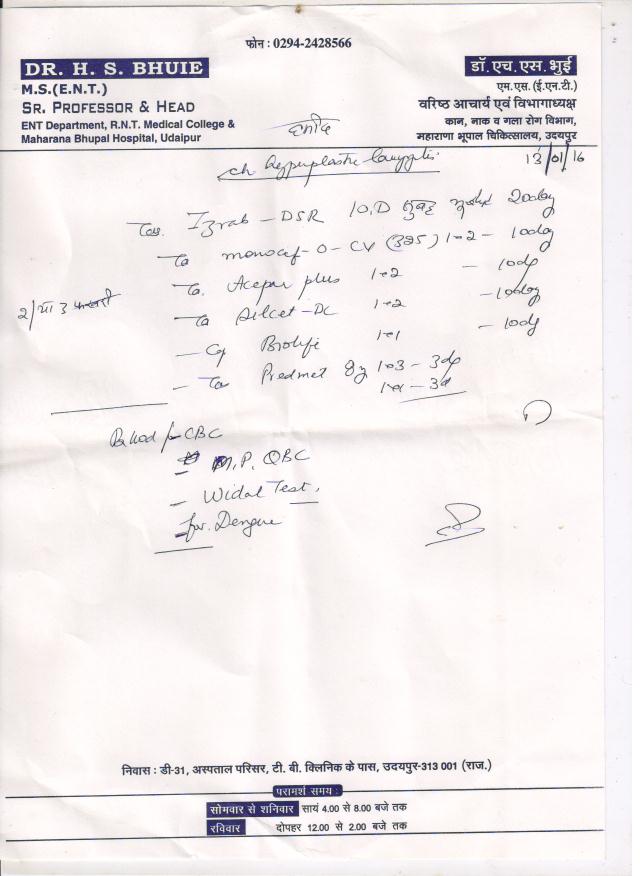 फोन : 0294-2428566
DR. H. S. BHUIE
M.S.(E.N.T.)
SR. PROFESSOR & HEAD
ENT Department, R.N.T. Medical College &
Maharana Bhupal Hospital, Udaipur
डॉ. एच. एस. भुई
एम. एस. (ई. एन. टी.)
वरिष्ठ आचार्य एवं विभागाध्यक्ष
कान, नाक व गला रोग विभाग,
महाराणा भूपाल चिकित्सालय, उदयपुर
13/01/16
ch
Izrab - DSR 10,D सुबह 20day
Ta monocef-O-CV (325) 1-2 - 10day
Ta. plus 1-2 - 10day
Ta DC 1-2 - 10day
1-1 - 10day
Ta Predmet 8g 1-3 - 3d
- 3d
2/या 3
Blood for CBC
M.P. QBC
- Widal Test,
for Dengue
निवास : डी-31, अस्पताल परिसर, टी. बी. क्लिनिक के पास, उदयपुर-313 001 (राज.)
परामर्श समय :
सोमवार से शनिवार सायं 4.00 से 8.00 बजे तक
रविवार दोपहर 12.00 से 2.00 बजे तक